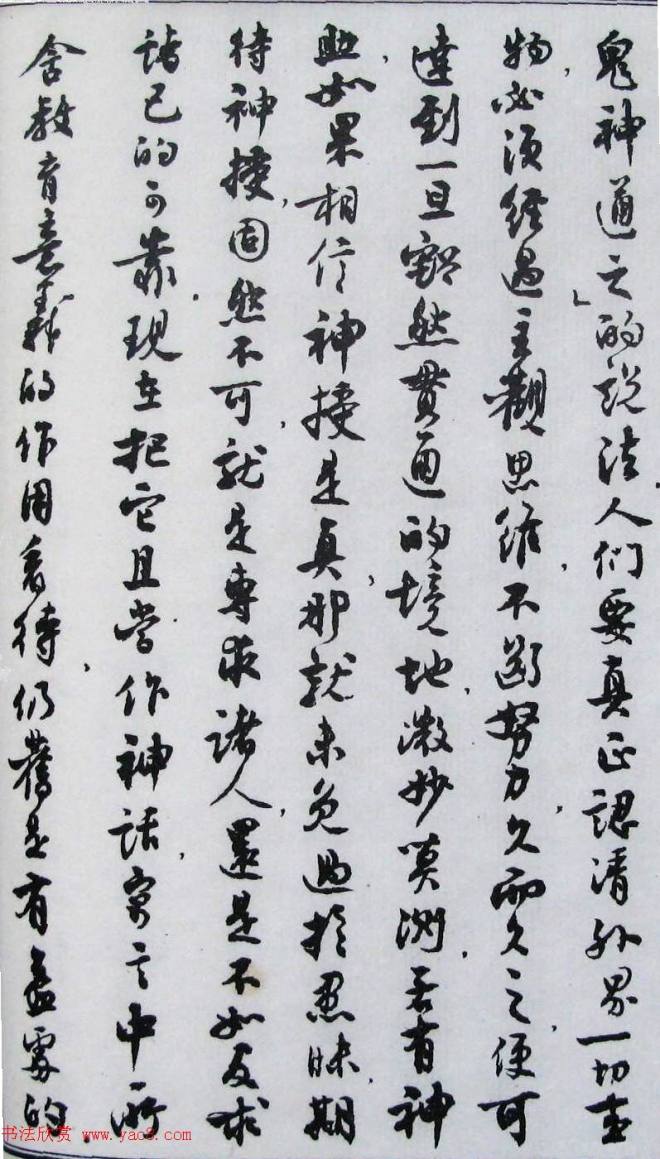 鬼神通之」的說法。人們要真正認清外界一切事
物，必須經過主觀思維，不斷努力，久而久之，便可
達到一旦豁然貫通的境地，微妙莫測，若有神
助。如果相信神授是真，那就未免過於愚昧。期
待神授，固然不可，就是專求諸人，還是不如反求
諸己的可靠。現在把它且當作神話、寓言中所
含教育意義的作用看待，仍舊是有益處的。
书法欣赏 www.yac8.com